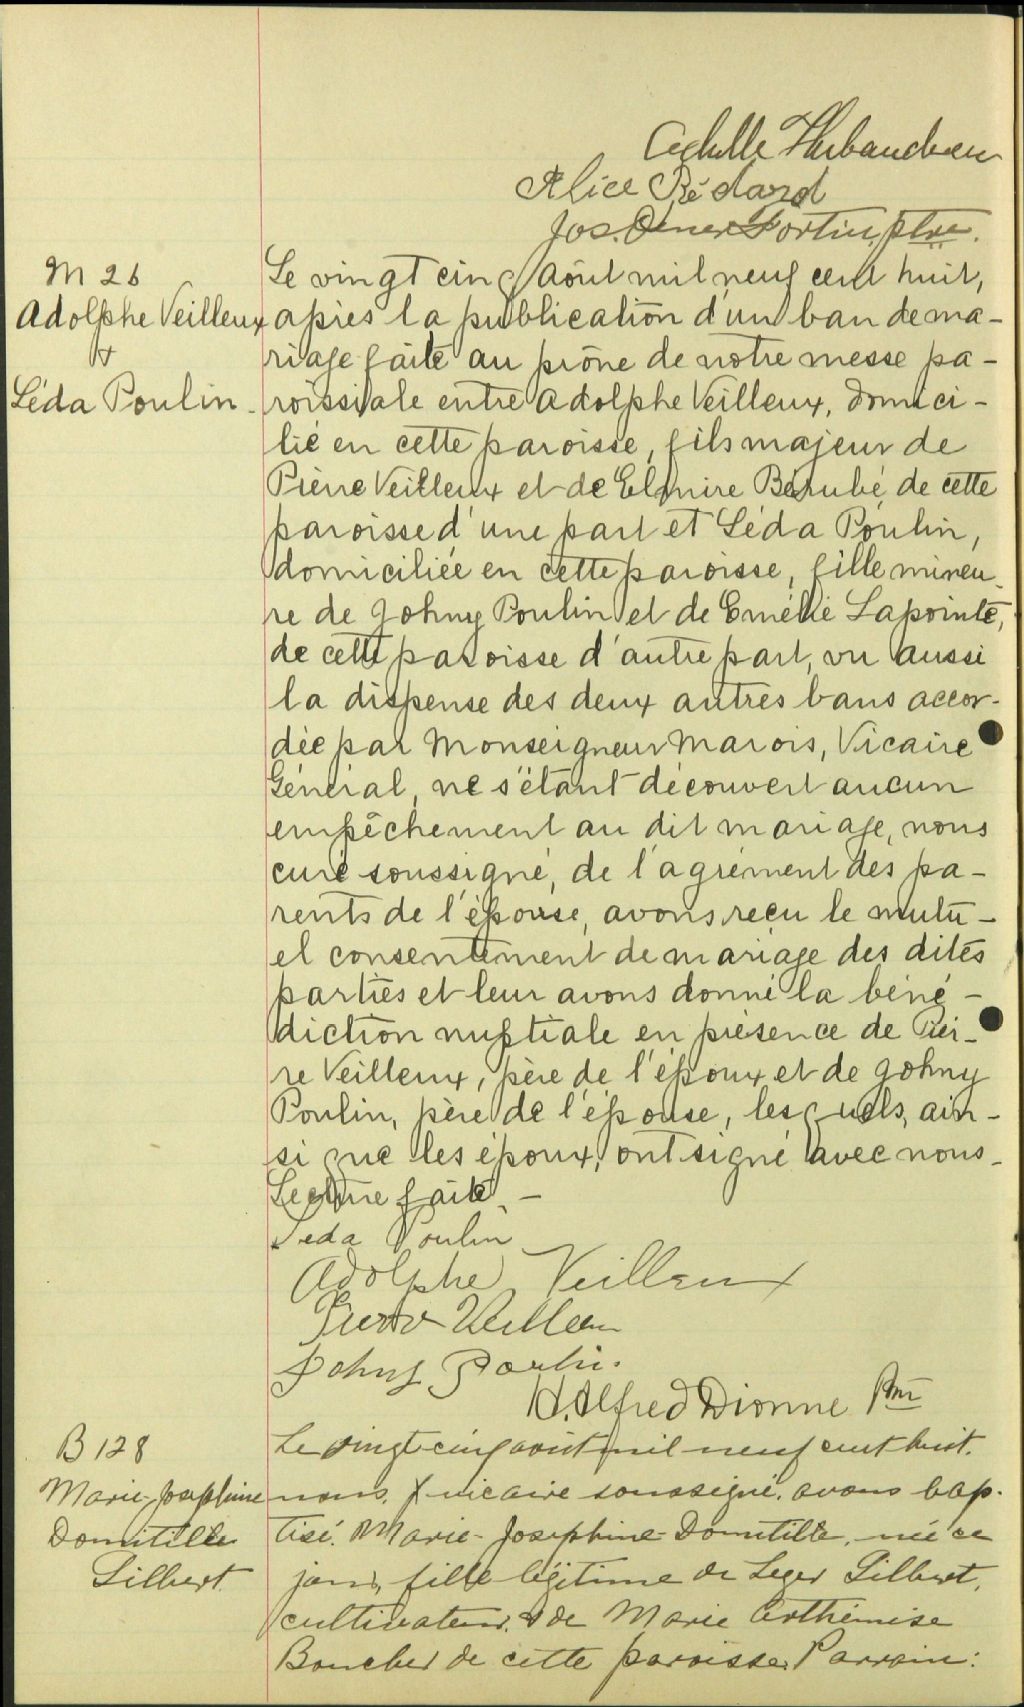 Achille Thibaudeau
Alice Bédard
Jos. Omer Fortin, ptre.
M 26
Adolphe Veilleux
+
Léda Poulin
Le vingt cinq Août mil neuf cent huit,
après la publication d'un ban de ma-
riage faite au prône de notre messe pa-
roissiale entre Adolphe Veilleux, domici-
lié en cette paroisse, fils majeur de
Pierre Veilleux et de Elmire Bérubé, de cette
paroisse d'une part et Léda Poulin,
domiciliée en cette paroisse, fille mineu-
re de Johny Poulin et de Emélie Lapointe,
de cette paroisse d'autre part, vu aussi
la dispense des deux autres bans accor-
dée par Monseigneur Marois, Vicaire
Général, ne s'étant découvert aucun
empêchement au dit mariage, nous
curé soussigné, de l'agrément des pa-
rents de l'épouse, avons reçu le mutu-
el consentement de mariage des dites
parties et leur avons donné la béné-
diction nuptiale en présence de Pier-
re Veilleux, père de l'époux et de Johny
Poulin, père de l'épouse, lesquels, ain-
si que les époux, ont signé avec nous.
Lecture faite. -
Leda Poulin
Adolphe Veilleux
Johny Poulin.
H. Alfred Dionne
B 128
Marie-Josephine
Domitille
Gilbert
Le vingt-cinq août mil neuf cent huit.
nous, vicaire soussigné, avons bap-
tisé Marie-Josephine-Domitille, née ce
jour, fille légitime de Leger Gilbert,
cultivateur, & de Marie Arthémise
Boucher de cette paroisse. Parrain: